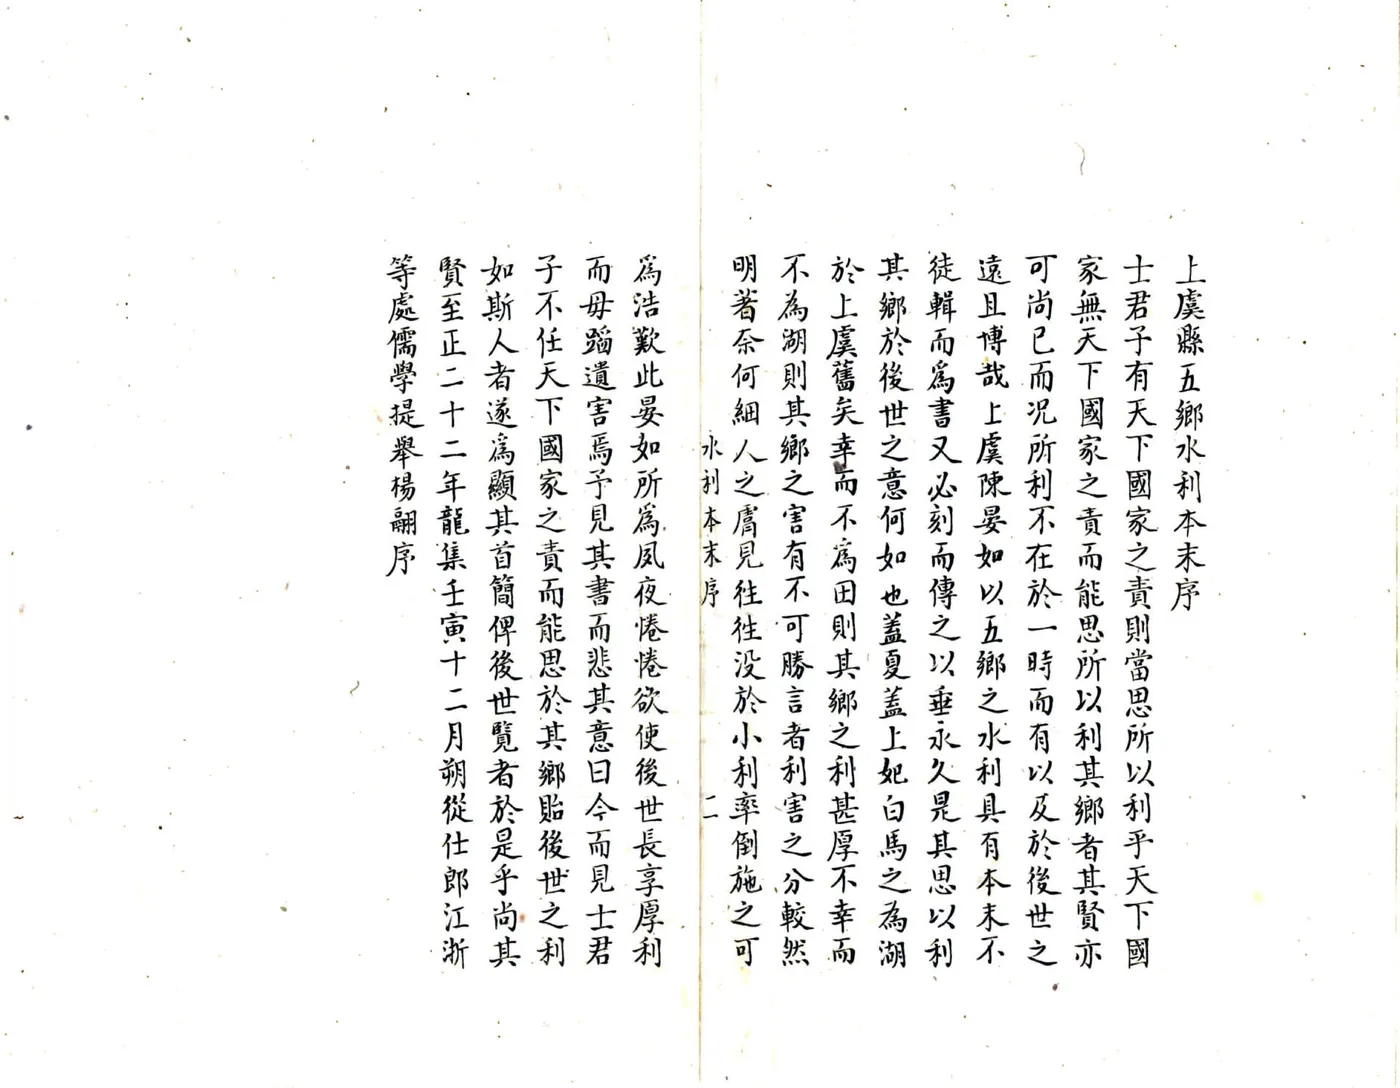 上虞縣五鄉水利本末序
士君子有天下國家之責則當思所以利乎天下國
家無天下國家之責而能思所以利其鄉者其賢亦
可尚已而况所利不在於一時而有以及於後世之
遠且博哉上虞陳晏如以五鄉之水利具有本末不
徒輯而爲書又必刻而傳之以垂永久是其思以利
其鄉於後世之意何如也蓋夏蓋上妃白馬之為湖
於上虞舊矣幸而不為田則其鄉之利甚厚不幸而
不為湖則其鄉之害有不可勝言者利害之分較然
明著奈何細人之膚見往往没於小利率倒施之可
水利本末序
二
爲浩歎此晏如所爲夙夜惓惓欲使後世長享厚利
而毋蹈遺害焉予見其書而悲其意曰今而見士君
子不任天下國家之責而能思於其鄉貽後世之利
如斯人者遂爲顯其首簡俾後世覽者於是乎尚其
賢至正二十二年龍集壬寅十二月朔從仕郎江浙
等處儒學提舉楊翮序